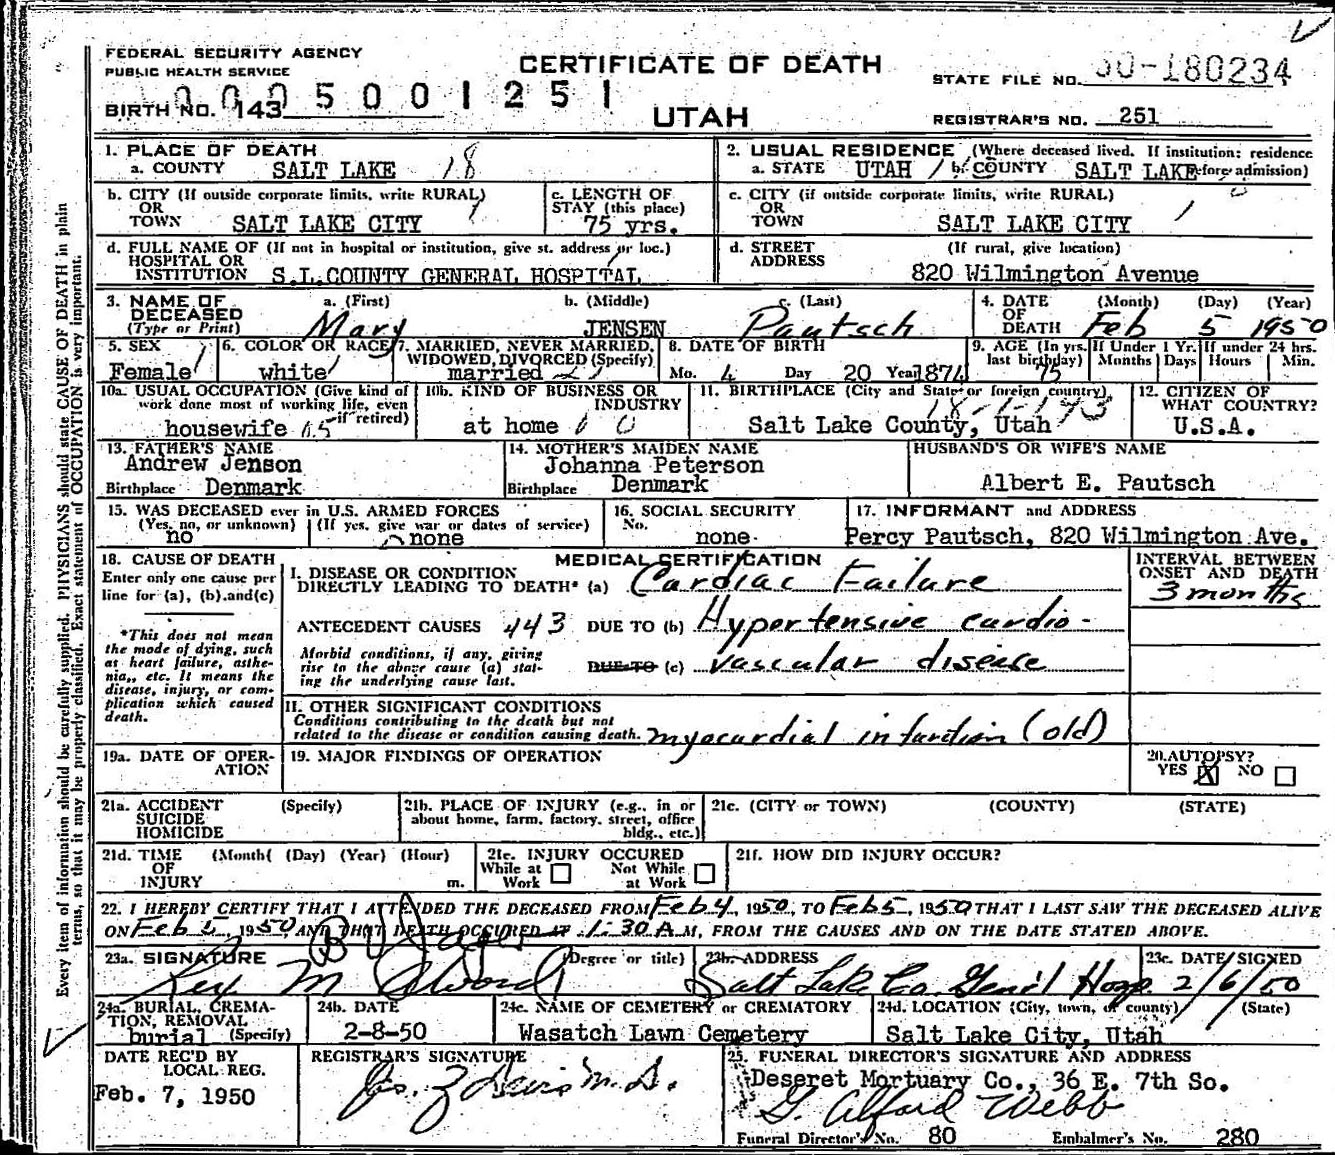 FEDERAL SECURITY AGENCY
PUBLIC HEALTH SERVICE
CERTIFICATE OF DEATH
STATE FILE NO. 50-180234
0005001251
BIRTH NO. 143
UTAH
REGISTRAR'S NO. 251
1. PLACE OF DEATH
a. COUNTY SALT LAKE 18
2. USUAL RESIDENCE (Where deceased lived. If institution: residence before admission)
a. STATE UTAH b. COUNTY SALT LAKE
b. CITY (If outside corporate limits, write RURAL)
OR
TOWN SALT LAKE CITY
c. LENGTH OF
STAY (this place)
75 yrs.
c. CITY (if outside corporate limits, write RURAL)
OR
TOWN SALT LAKE CITY
d. FULL NAME OF (If not in hospital or institution, give st. address or loc.)
HOSPITAL OR
INSTITUTION S.L.COUNTY GENERAL HOSPITAL
d. STREET (If rural, give location)
ADDRESS
820 Wilmington Avenue
3. NAME OF a. (First) b. (Middle) c. (Last)
DECEASED
(Type or Print) Mary JENSEN Pautsch
4. DATE (Month) (Day) (Year)
OF
DEATH Feb 5 1950
5. SEX
Female
6. COLOR OR RACE
white
7. MARRIED, NEVER MARRIED,
WIDOWED, DIVORCED (Specify)
married
8. DATE OF BIRTH
Mo. 4 Day 20 Year 1874
9. AGE (In yrs. last birthday) 75
If Under 1 Yr. Months Days
If under 24 hrs. Hours Min.
10a. USUAL OCCUPATION (Give kind of
work done most of working life, even
if retired)
housewife
10b. KIND OF BUSINESS OR
INDUSTRY
at home
11. BIRTHPLACE (City and State or foreign country)
Salt Lake County, Utah
12. CITIZEN OF
WHAT COUNTRY?
U.S.A.
13. FATHER'S NAME
Andrew Jenson
Birthplace Denmark
14. MOTHER'S MAIDEN NAME
Johanna Peterson
Birthplace Denmark
HUSBAND'S OR WIFE'S NAME
Albert E. Pautsch
15. WAS DECEASED ever in U.S. ARMED FORCES
(Yes, no, or unknown) (If yes, give war or dates of service)
no none
16. SOCIAL SECURITY
No. none.
17. INFORMANT and ADDRESS
Percy Pautsch, 820 Wilmington Ave.
18. CAUSE OF DEATH
Enter only one cause per
line for (a), (b).and(c)
*This does not mean
the mode of dying, such
as heart failure, asthe-
nia,, etc. It means the
disease, injury, or com-
plication which caused
death.
MEDICAL CERTIFICATION
I. DISEASE OR CONDITION
DIRECTLY LEADING TO DEATH* (a) Cardiac Failure
ANTECEDENT CAUSES 443 DUE TO (b) Hypertensive cardio-
Morbid conditions, if any, giving
rise to the above cause (a) stat-
ing the underlying cause last.
DUE TO (c) vascular disease
II. OTHER SIGNIFICANT CONDITIONS
Conditions contributing to the death but not
related to the disease or condition causing death. myocardial infarction (old)
INTERVAL BETWEEN
ONSET AND DEATH
3 months
19a. DATE OF OPER-
ATION
19. MAJOR FINDINGS OF OPERATION
20. AUTOPSY?
YES X NO
21a. ACCIDENT (Specify)
SUICIDE
HOMICIDE
21b. PLACE OF INJURY (e.g., in or
about home, farm, factory, street, office
bldg., etc.)
21c. (CITY or TOWN) (COUNTY) (STATE)
21d. TIME (Month( (Day) (Year) (Hour)
OF
INJURY m.
21e. INJURY OCCURED
While at Work Not While at Work
21f. HOW DID INJURY OCCUR?
22. I HEREBY CERTIFY THAT I ATTENDED THE DECEASED FROM Feb 4, 1950, TO Feb 5, 1950 THAT I LAST SAW THE DECEASED ALIVE
ON Feb 5, 1950, AND THAT DEATH OCCURED AT 1:30 A M, FROM THE CAUSES AND ON THE DATE STATED ABOVE.
23a. SIGNATURE (Degree or title)
23b. ADDRESS
Salt Lake Co. Gen'l Hosp
23c. DATE SIGNED
2/6/50
24a. BURIAL, CREMA-
TION, REMOVAL
burial (Specify)
24b. DATE
2-8-50
24c. NAME OF CEMETERY or CREMATORY
Wasatch Lawn Cemetery
24d. LOCATION (City, town, or county) (State)
Salt Lake City, Utah
DATE REC'D BY
LOCAL REG.
Feb. 7, 1950
REGISTRAR'S SIGNATURE
25. FUNERAL DIRECTOR'S SIGNATURE AND ADDRESS
Deseret Mortuary Co., 36 E. 7th So.
G. Alford Webb
Funeral Director's No. 80 Embalmer's No. 280
Every item of information should be carefully supplied. PHYSICIANS should state CAUSE OF DEATH in plain
terms, so that it may be properly classified. Exact statement of OCCUPATION is very important.